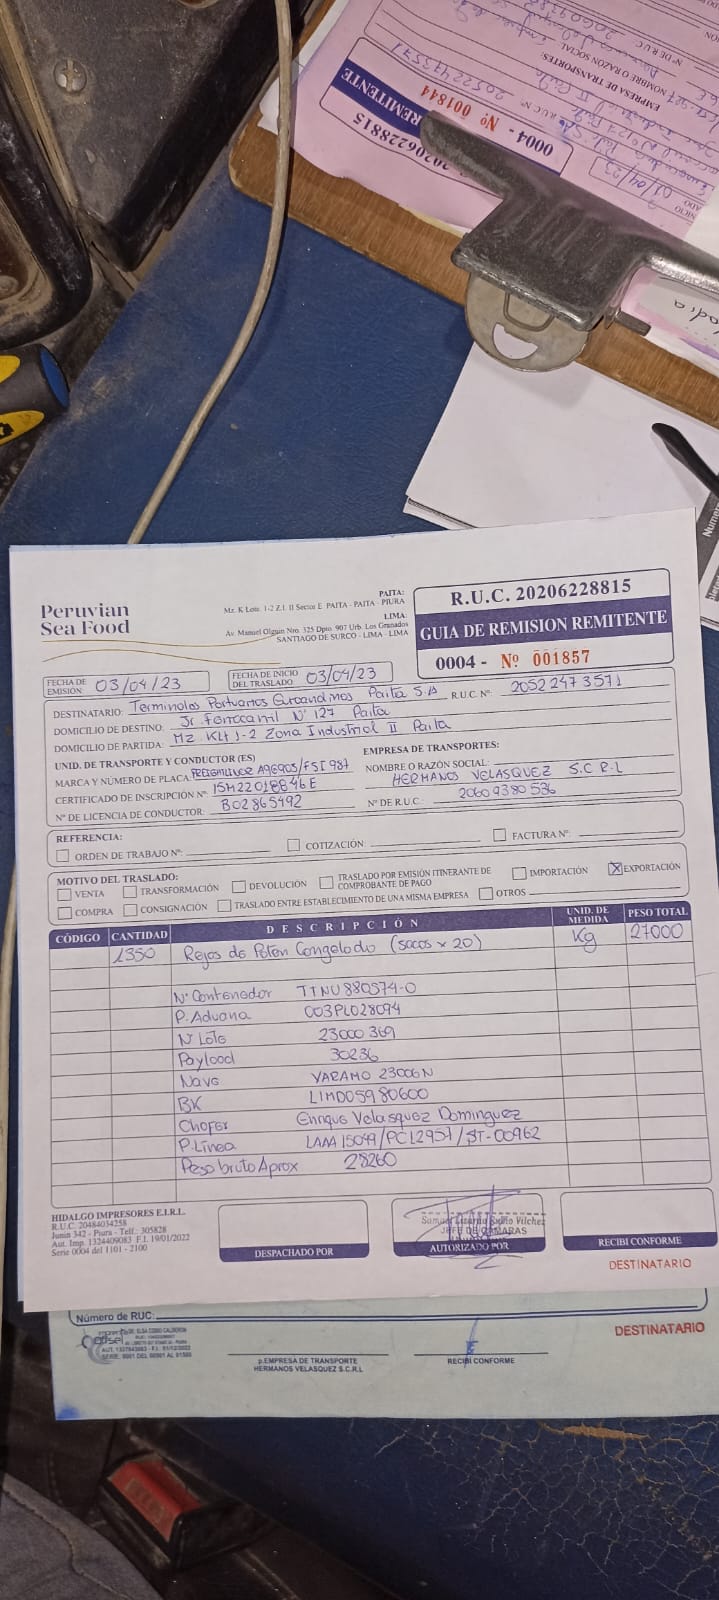 20206228815
REMITENTE
0004 - Nº 001844
R.U.C. Nº: 20522473571
EMPRESA DE TRANSPORTES:
NOMBRE O RAZÓN SOCIAL:
Nº DE RUC
Peruvian
Sea Food
PAITA:
Mz. K Lote. 1-2 Z.I. II Sector E PAITA - PAITA - PIURA
LIMA:
Av. Manuel Olguin Nro. 325 Dpto. 907 Urb. Los Granados
SANTIAGO DE SURCO - LIMA - LIMA
R.U.C. 20206228815
GUIA DE REMISION REMITENTE
0004 - Nº 001857
FECHA DE EMISIÓN 03/04/23
FECHA DE INICIO DEL TRASLADO 03/04/23
DESTINATARIO: Terminales Portuarios Euroandinos Paita S.A R.U.C. Nº: 20522473571
DOMICILIO DE DESTINO: Jr Ferrocarril Nº 127 Paita
DOMICILIO DE PARTIDA: Mz K Lt 1-2 Zona Industrial II Paita
UNID. DE TRANSPORTE Y CONDUCTOR (ES)
MARCA Y NÚMERO DE PLACA: FREIGHTLINER A9E903/FSI987
CERTIFICADO DE INSCRIPCIÓN Nº: 15M22018846E
Nº DE LICENCIA DE CONDUCTOR: B02865492
EMPRESA DE TRANSPORTES:
NOMBRE O RAZÓN SOCIAL:
HERMANOS VELASQUEZ S.C.R.L
Nº DE R.U.C.: 20609380536
REFERENCIA:
ORDEN DE TRABAJO Nº: COTIZACIÓN: FACTURA Nº:
MOTIVO DEL TRASLADO:
VENTA TRANSFORMACIÓN DEVOLUCIÓN TRASLADO POR EMISIÓN ITINERANTE DE COMPROBANTE DE PAGO IMPORTACIÓN X EXPORTACIÓN
COMPRA CONSIGNACIÓN TRASLADO ENTRE ESTABLECIMIENTO DE UNA MISMA EMPRESA OTROS
CÓDIGO CANTIDAD DESCRIPCIÓN UNID. DE MEDIDA PESO TOTAL
1350 Rejos de Poton Congelado (sacos x 20) Kg 27000
Nº Contenedor TTNU880574-0
P. Aduana 003PL028094
Nº Lote 23000369
Payload 30236
Nave YARAMO 23006N
BK LIMD05980600
Chofer Enrique Velasquez Dominguez
P. Línea LAAA15049/PC12957/ST-00962
Peso bruto Aprox 28260
HIDALGO IMPRESORES E.I.R.L.
R.U.C. 20484034258
Junin 342 - Piura - Telf.: 305828
Aut. Imp. 1324409083 F.I. 19/01/2022
Serie 0004 del 1101 - 2100
DESPACHADO POR
JEFE DE CAMARAS
AUTORIZADO POR
RECIBI CONFORME
DESTINATARIO
Número de RUC:
DESTINATARIO
p.EMPRESA DE TRANSPORTE
HERMANOS VELASQUEZ S.C.R.L
RECIBI CONFORME